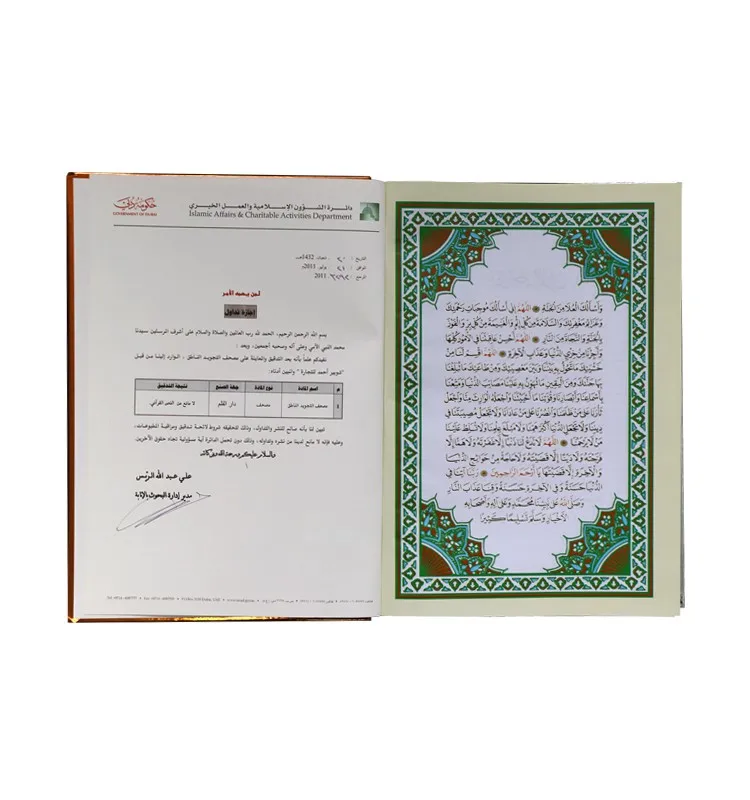 وَأَسْأَلُكَ الْعُلَا مِنَ الْجَنَّةِ اللَّهُمَّ إِنِّي أَسْأَلُكَ مُوجِبَاتِ رَحْمَتِكَ
وَعَزَائِمَ مَغْفِرَتِكَ وَالسَّلَامَةَ مِنْ كُلِّ إِثْمٍ وَالْغَنِيمَةَ مِنْ كُلِّ بِرٍّ وَالْفَوْزَ
بِالْجَنَّةِ وَالنَّجَاةَ مِنَ النَّارِ اللَّهُمَّ أَحْسِنْ عَاقِبَتَنَا فِي الْأُمُورِ كُلِّهَا
وَأَجِرْنَا مِنْ خِزْيِ الدُّنْيَا وَعَذَابِ الْآخِرَةِ اللَّهُمَّ اقْسِمْ لَنَا مِنْ
خَشْيَتِكَ مَا تَحُولُ بِهِ بَيْنَنَا وَبَيْنَ مَعْصِيَتِكَ وَمِنْ طَاعَتِكَ مَا تُبَلِّغُنَا
بِهَا جَنَّتَكَ وَمِنَ الْيَقِينِ مَا تُهَوِّنُ بِهِ عَلَيْنَا مَصَائِبَ الدُّنْيَا وَمَتِّعْنَا
بِأَسْمَاعِنَا وَأَبْصَارِنَا وَقُوَّتِنَا مَا أَحْيَيْتَنَا وَاجْعَلْهُ الْوَارِثَ مِنَّا وَاجْعَلْ
ثَأْرَنَا عَلَى مَنْ ظَلَمَنَا وَانْصُرْنَا عَلَى مَنْ عَادَانَا وَلَا تَجْعَلْ مُصِيبَتَنَا فِي
دِينِنَا وَلَا تَجْعَلِ الدُّنْيَا أَكْبَرَ هَمِّنَا وَلَا مَبْلَغَ عِلْمِنَا وَلَا تُسَلِّطْ عَلَيْنَا
مَنْ لَا يَرْحَمُنَا اللَّهُمَّ لَا تَدَعْ لَنَا ذَنْبًا إِلَّا غَفَرْتَهُ وَلَا هَمًّا إِلَّا
فَرَّجْتَهُ وَلَا دَيْنًا إِلَّا قَضَيْتَهُ وَلَا حَاجَةً مِنْ حَوَائِجِ الدُّنْيَا
وَالْآخِرَةِ إِلَّا قَضَيْتَهَا يَا أَرْحَمَ الرَّاحِمِينَ رَبَّنَا آتِنَا فِي
الدُّنْيَا حَسَنَةً وَفِي الْآخِرَةِ حَسَنَةً وَقِنَا عَذَابَ النَّارِ
وَصَلَّى اللَّهُ عَلَى نَبِيِّنَا مُحَمَّدٍ وَعَلَى آلِهِ وَأَصْحَابِهِ
الْأَخْيَارِ وَسَلَّمَ تَسْلِيمًا كَثِيرًا
حكومة دبي
GOVERNMENT OF DUBAI
دائرة الشؤون الإسلامية والعمل الخيري
Islamic Affairs & Charitable Activities Department
التاريخ : ٢٠ ، شعبان، 1432هـ
الموافق : ٢١ يوليو، 2011م
الرجع : 2011
لمن يهمه الأمر
إجازة تداول
بسم الله الرحمن الرحيم، الحمد لله رب العالمين والصلاة والسلام على أشرف المرسلين سيدنا
محمد النبي الأمي وعلى آله وصحبه أجمعين، وبعد :
نفيدكم علماً بأنه بعد التدقيق والمعاينة على مصحف التجويد الناطق ، الوارد إلينا من قبل
أحمد للتجارة والمبين أدناه:
م اسم المادة نوع المادة جهة الصنع نتيجة التدقيق
1 مصحف التجويد الناطق مصحف دار القلم لا مانع من النص القرآني.
تبين لنا بأنه صالح للنشر والتداول، وذلك لتحقيقه شروط لائحة تدقيق ومراقبة المطبوعات،
وعليه فإنه لا مانع لدينا من نشره وتداوله، وذلك دون تحمل الدائرة أية مسؤولية تجاه حقوق الآخرين.
والسلام عليكم ورحمة الله وبركاته
علي عبد الله الريس
مدير إدارة البحوث بالإنابة